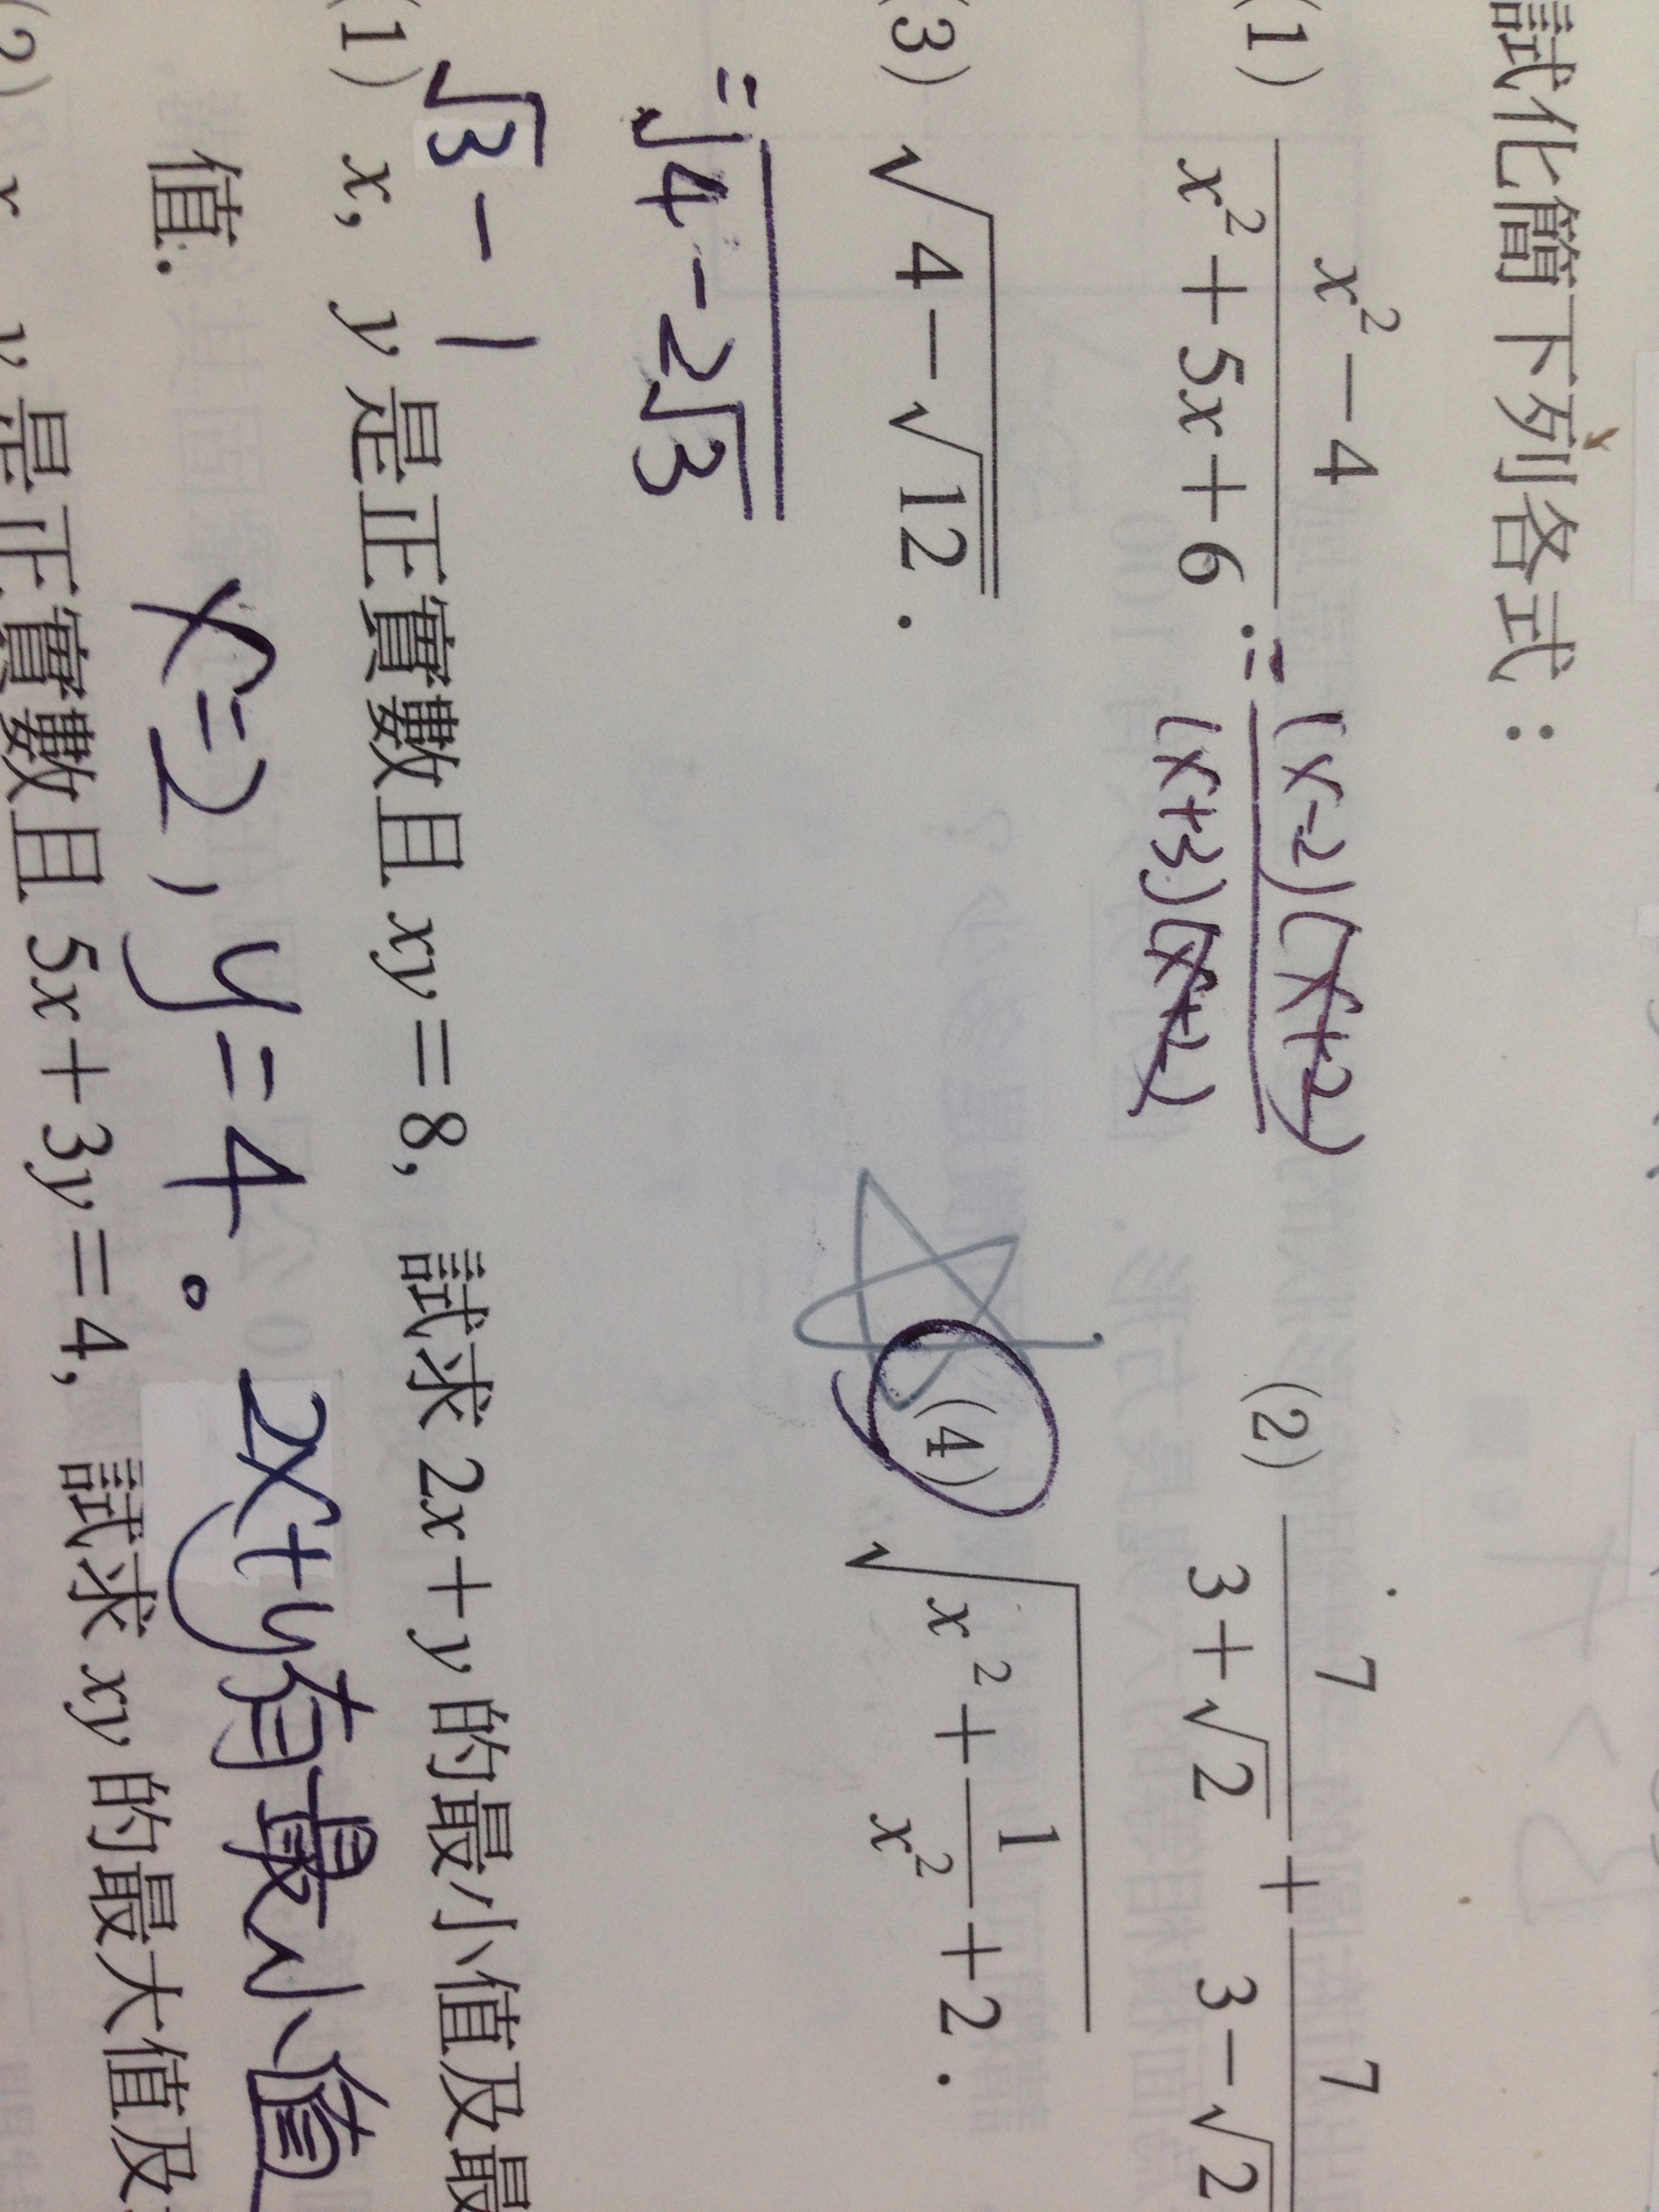 試化簡下列各式：
(1) \frac{x^2-4}{x^2+5x+6}. = \frac{(x-2)(x+2)}{(x+3)(x+2)}
(2) \frac{7}{3+\sqrt{2}} + \frac{7}{3-\sqrt{2}}
(3) \sqrt{4-\sqrt{12}}.
(4) \sqrt{x^2+\frac{1}{x^2}+2}.
= \sqrt{4-2\sqrt{3}}
\sqrt{3}-1
(1) x, y 是正實數且 xy=8, 試求 2x+y 的最小值及最
值.
x=2, y=4。2x+y有最小值
(2) x, y 是正實數且 5x+3y=4, 試求 xy 的最大值及